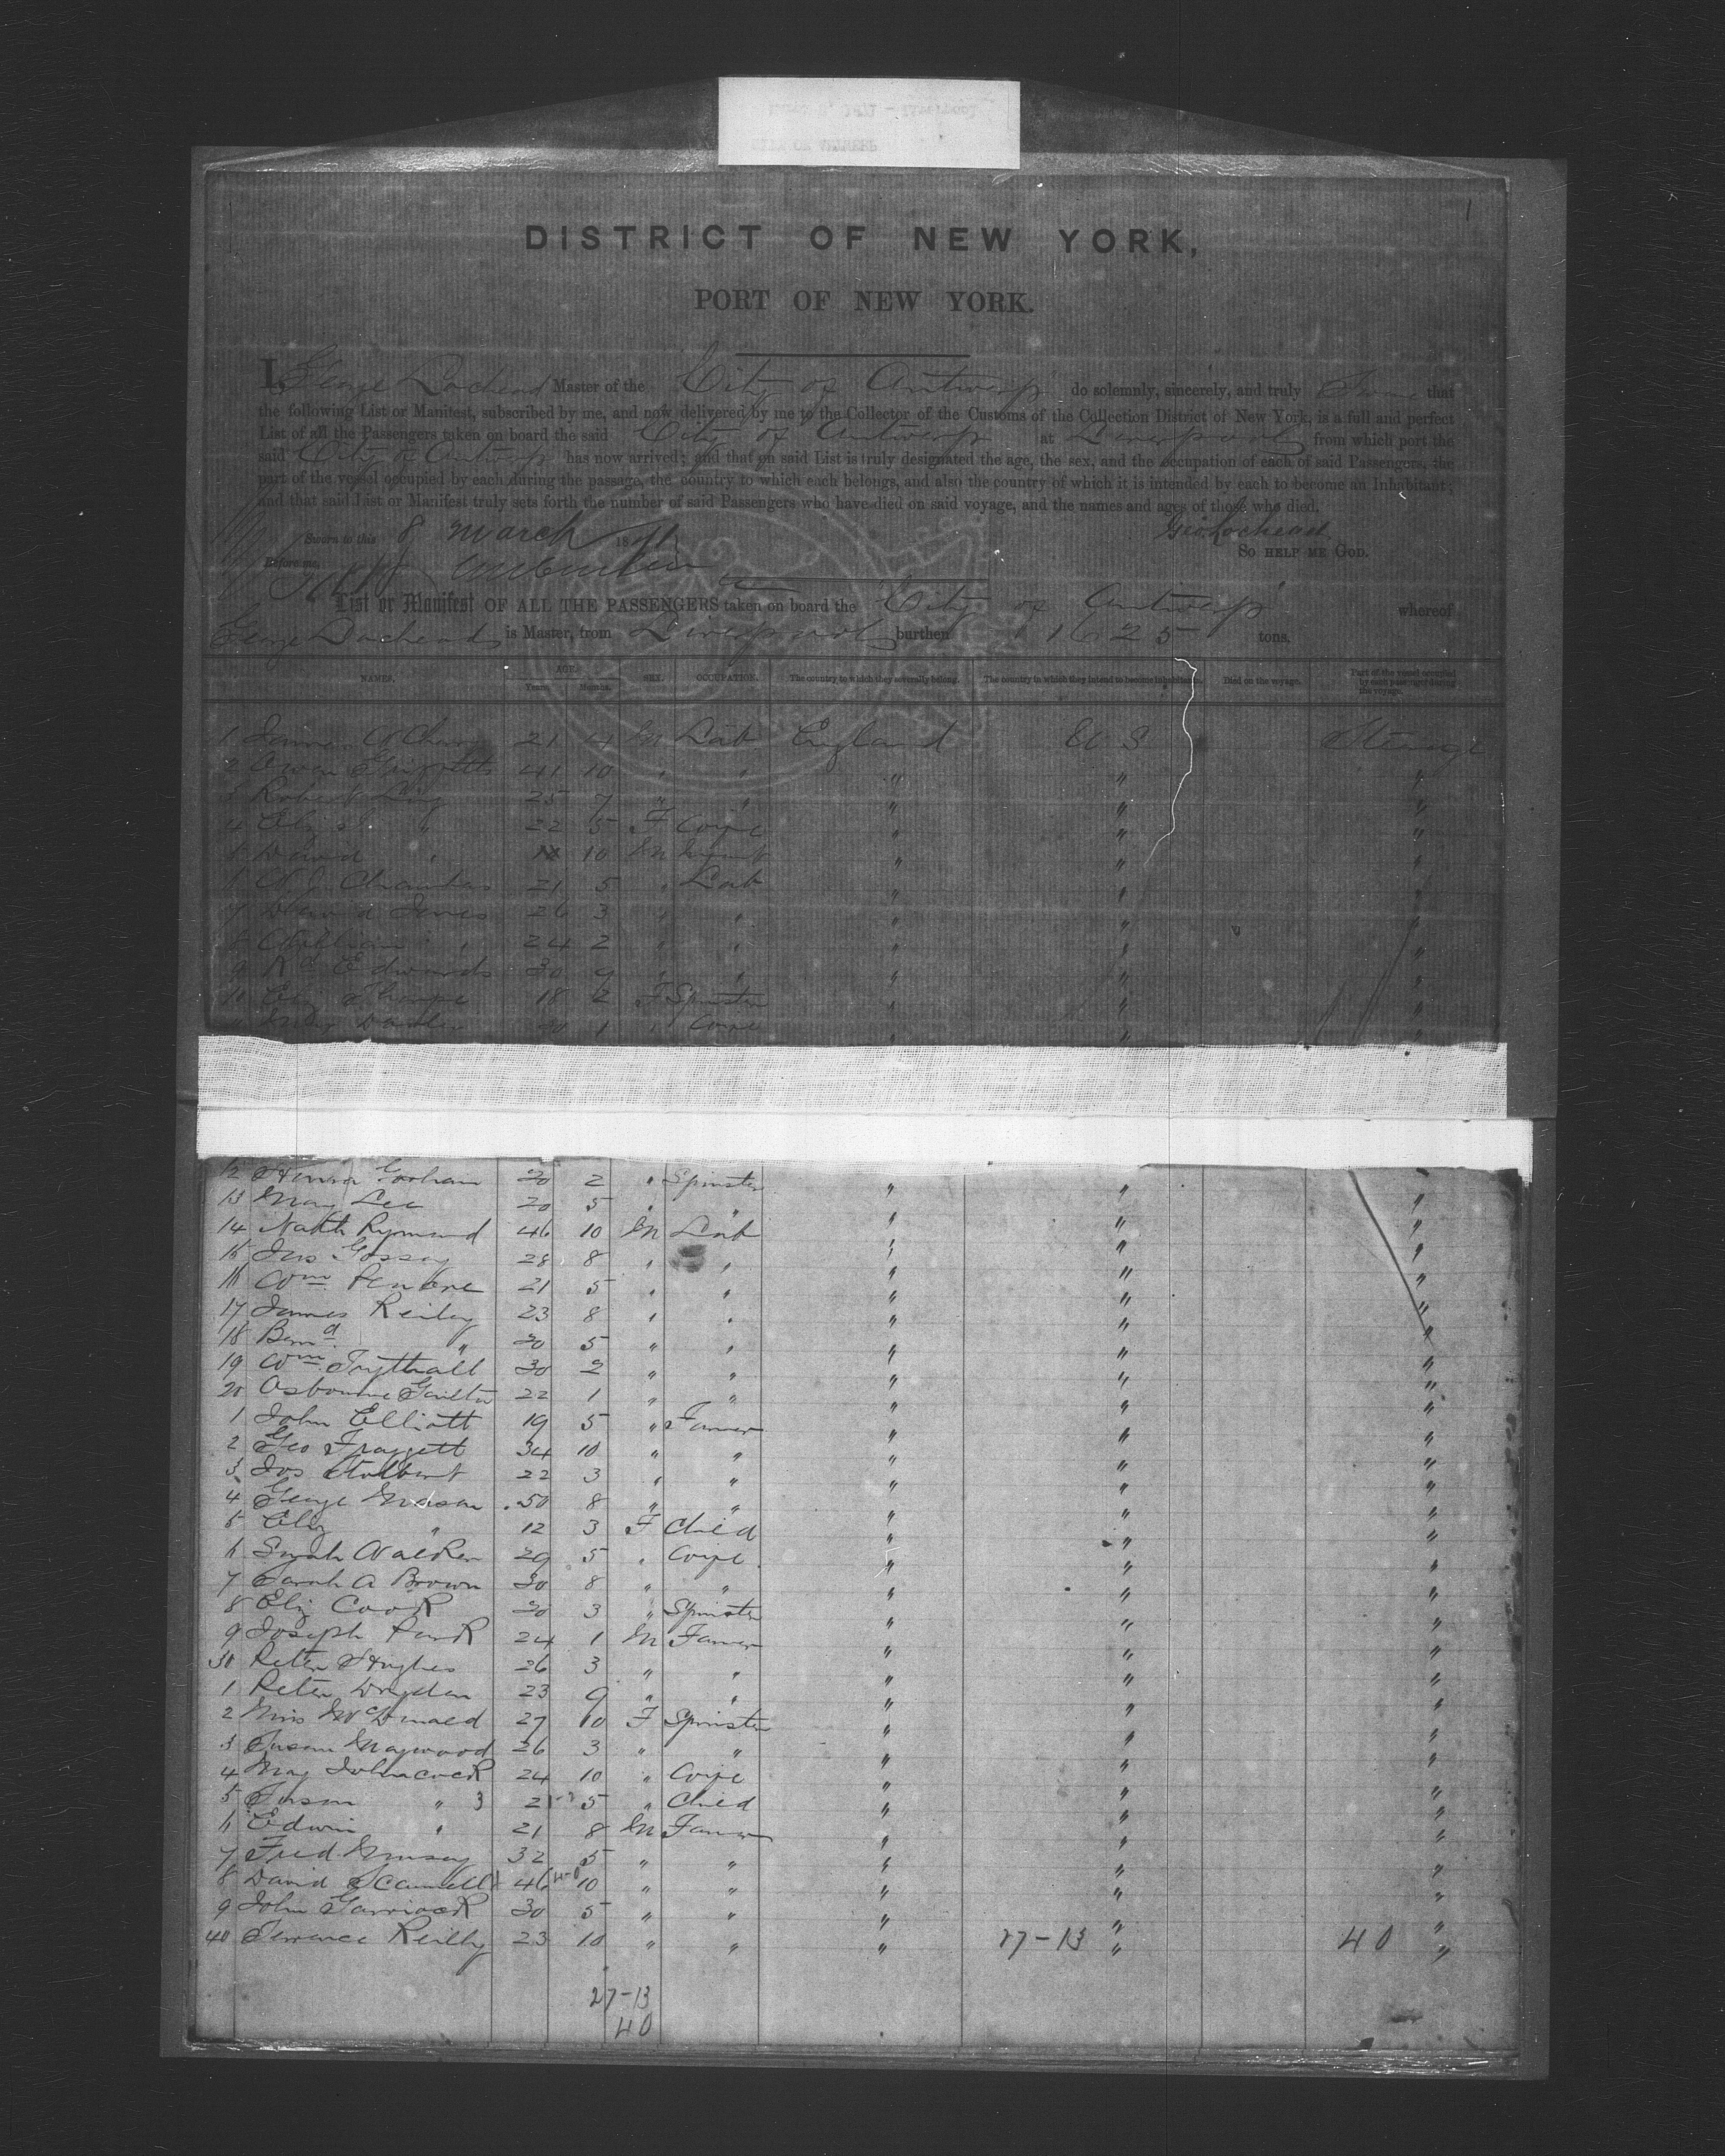 1
DISTRICT OF NEW YORK,
PORT OF NEW YORK.
I George Lochead Master of the City of Antwerp do solemnly, sincerely, and truly that
the following List or Manifest, subscribed by me, and now delivered by me to the Collector of the Customs of the Collection District of New York, is a full and perfect
List of all the Passengers taken on board the said City of Antwerp at Liverpool from which port the
said City of Antwerp has now arrived; and that on said List is truly designated the age, the sex, and the occupation of each of said Passengers, the
part of the vessel occupied by each during the passage, the country to which each belongs, and also the country of which it is intended by each to become an Inhabitant;
and that said List or Manifest truly sets forth the number of said Passengers who have died on said voyage, and the names and ages of those who died.
Geo Lochead
Sworn to this 8 march 1871
So HELP ME GOD.
Before me,
List or Manifest OF ALL THE PASSENGERS taken on board the City of Antwerp whereof
George Lacheads is Master, from Liverpool burthen 1625 tons.
NAMES. AGE. Years. Months. SEX. OCCUPATION. The country to which they severally belong. The country to which they intend to become inhabitants. Died on the voyage. Part of the vessel occupied by each passenger during the voyage.
1 James 21 4 M Lab England U S Steerage
2 Owen Griffiths 41 10 " " " " "
3 Robert 25 7 " " " " "
4 Eliz " 22 5 F Wife " " "
5 David " 10 M " " "
6 W. J. Chambers 21 5 " Lab " " "
7 David Jones 26 3 " " " " "
8 William " 24 2 " " " " "
9 Rd Edwards 30 9 " " " " "
10 Eliz Tharpe 18 2 F Spinster " " "
1 " Wife " " "
12 20 2 " Spinster " " "
13 Mary Lee 20 5 " " " " "
14 Nath Rymand 46 10 M Lab " " "
15 Jas 28 8 " " " " "
16 Wm 21 5 " " " " "
17 James Reiley 23 8 " " " " "
18 Bernd " 20 5 " " " " "
19 Wm Trythall 30 2 " " " " "
20 Osbourne 22 1 " " " " "
1 John Elliott 19 5 " Farmer " " "
2 Geo Fraggett 34 10 " " " " "
3 Jos 22 3 " " " " "
4 George Mason 50 8 " " " " "
5 Eliz " 12 3 F Child " " "
6 Sarah Walker 29 5 " Wife " " "
7 Sarah A Brown 30 8 " " " " "
8 Eliz Cook 20 3 " Spinster " " "
9 Joseph Park 24 1 M Farmer " " "
30 Peter Hughes 26 3 " " " " "
1 Peter Dryden 23 9 " " " " "
2 Miss McDonald 27 10 F Spinster " " "
3 Susan Maywood 26 3 " " " " "
4 Mary Johnacock 24 10 " Wife " " "
5 Susan " 3 5 " Child " " "
6 Edwin " 21 8 M Farmer " " "
7 Fred 32 5 " " " " "
8 David Scannell 46 10 " " " " "
9 John Garriock 30 5 " " " " "
40 Terrence Reilly 23 10 " " " 27-13 " 40 "
27-13
40